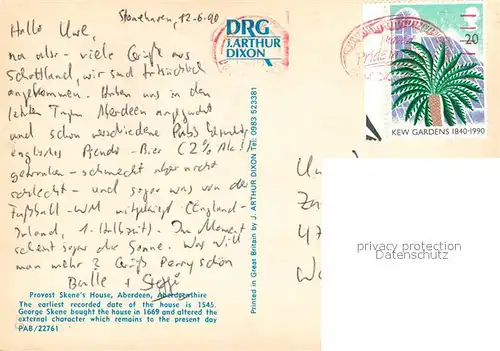 Stonehaven, 12.6.90
Hallo Uwe,
na also - viele Grüße aus
Schottland, wir sind tatsächlich
angekommen. Haben uns in den
letzten Tagen Aberdeen angeguckt
und schon verschiedene Pubs
englisches Pseudo-Bier (2% Alc!)
getrunken - schmeckt aber nicht
schlecht - und sogar was von der
Fußball-WM mitgekriegt (England-
Irland, 1. Halbzeit). Im Moment
scheint sogar die Sonne. Was will
man mehr? Grüß Perry schön
+ Steffi
DRG
J. ARTHUR
DIXON
Printed in Great Britain by J. ARTHUR DIXON Tel: 0983 523381
20
KEW GARDENS 1840-1990
privacy protection
MARKENFIX.DE
Provost Skene's House, Aberdeen, Aberdeenshire
The earliest recorded date of the house is 1545.
George Skene bought the house in 1669 and altered the
external character which remains to the present day
PAB/22761